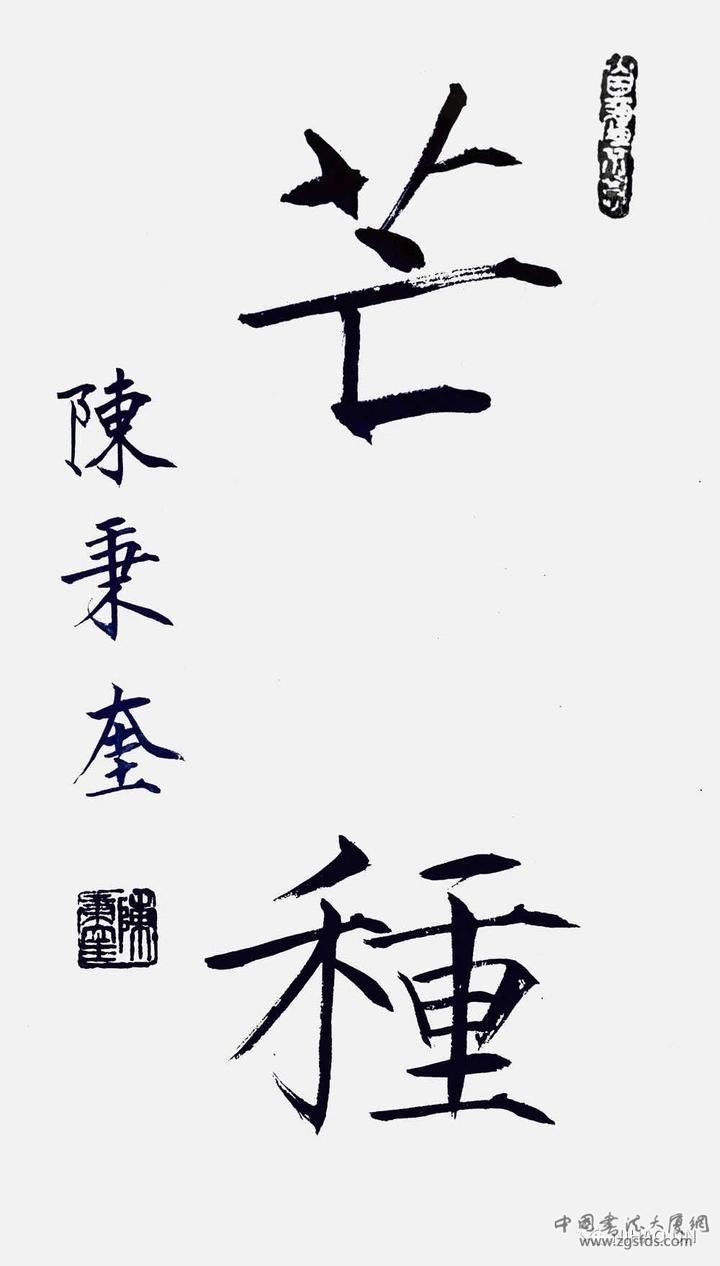 芒種
陳秉奎
陳秉奎
中国書法大厦網
www.zgsfds.com